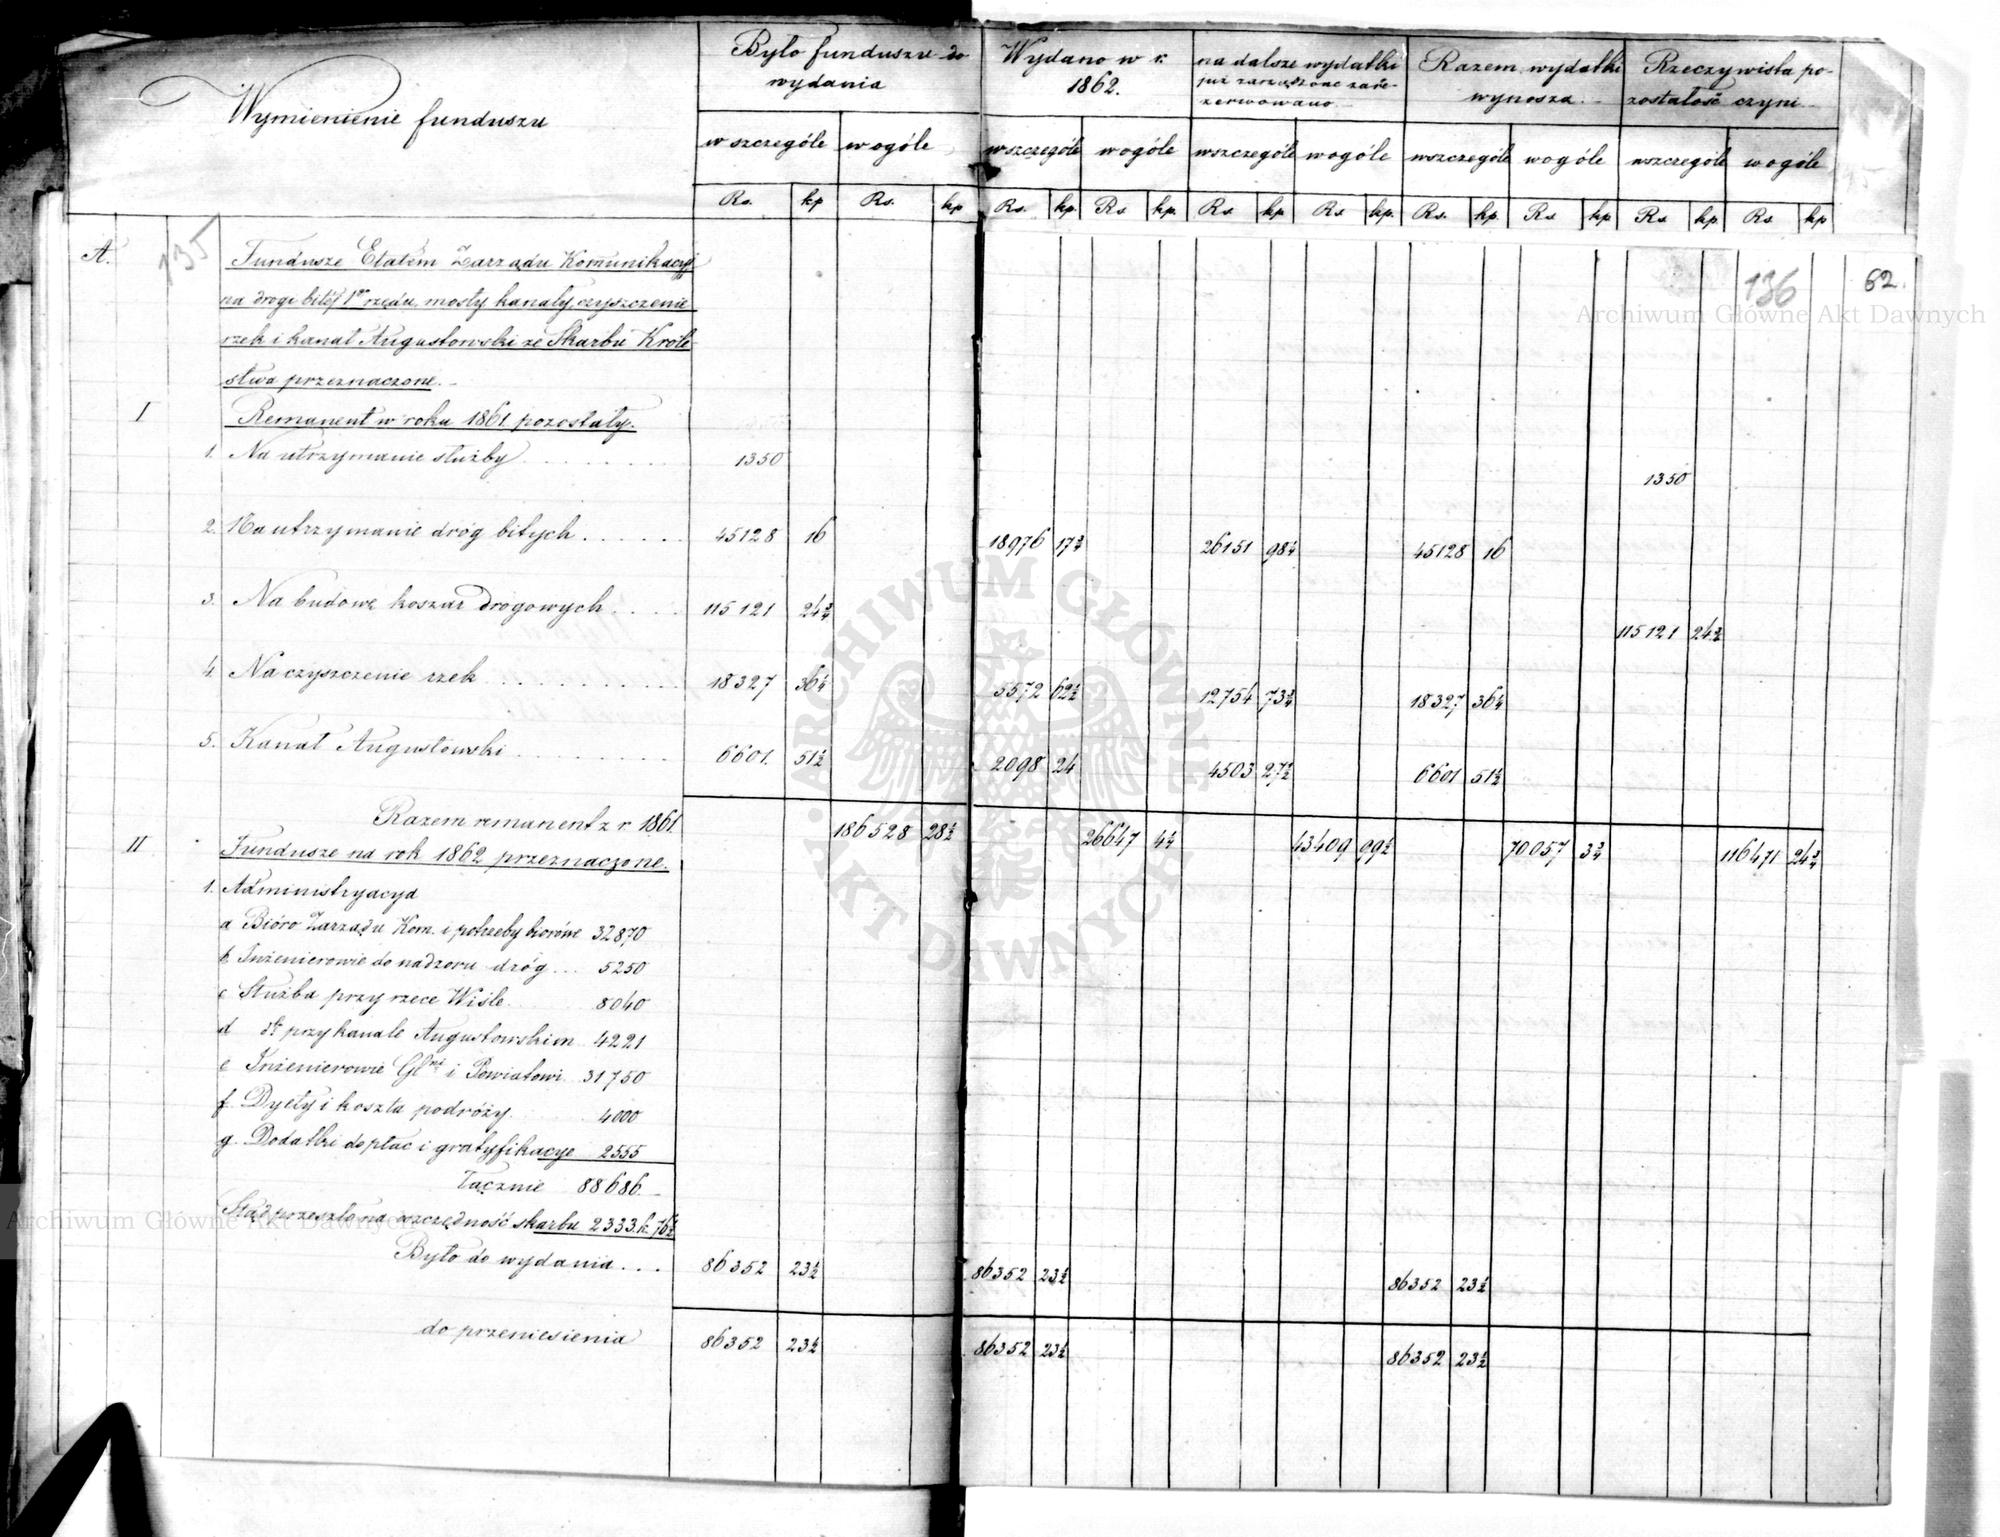 Wymienienie funduszu
Było funduszu do wydania
Wydano w r. 1862.
na dalsze wydatki już zarządzone zarezerwowano
Razem wydatki wynoszą.
Rzeczywista pozostałość czyni
w szczególe w ogóle w szczególe w ogóle w szczególe w ogóle w szczególe w ogóle w szczególe w ogóle
Rs. kp Rs. kp Rs. kp. Rs kp. Rs kp Rs kp. Rs. kp. Rs kp Rs kp. Rs. kp
135
136
62.
Archiwum Główne Akt Dawnych
A. Fundusze Etatem Zarządu Komunikacyi
na drogi bite 1go rzędu, mosty kanały, czyszczenie
rzek i kanał Augustowski ze Skarbu Króle-
stwa przeznaczone.
I Remanent w roku 1861 pozostały.
1. Na utrzymanie służby 1350 1350
2. Na utrzymanie dróg bitych 45128 16 18976 17¾ 26151 98¼ 45128 16
3. Na budowę koszar drogowych 115121 24¾ 115121 24¾
4. Na czyszczenie rzek 18327 36¼ 5572 62½ 12754 73¾ 18327 36¼
5. Kanał Augustowski 6601. 51½ 2098 24 4503 27½ 6601 51½
Razem remanent z r. 1861. 186528 28½ 26647 4¼ 43409 99½ 70057 3¾ 116471 24¾
II Fundusze na rok 1862 przeznaczone.
1. Administracya
a Bióro Zarządu Kom. i potrzeby biórowe 32870
b Inżenierowie do nadzoru dróg 5250
c Służba przy rzece Wiśle 8040
d dto przy kanale Augustowskim 4221
e Inżenierowie Glni i Powiatowi 31750
f. Dyety i koszta podróży 4000
g. Dodatki do płac i gratyfikacye 2555
Łącznie 88686.
Stąd przeszło na oszczędność skarbu 2333. k. 76½
Było do wydania 86352 23½ 86352 23½ 86352 23½
do przeniesienia 86352 23½ 86352 23½ 86352 23½
ARCHIWUM GŁÓWNE AKT DAWNYCH
Archiwum Główne Akt Dawnych